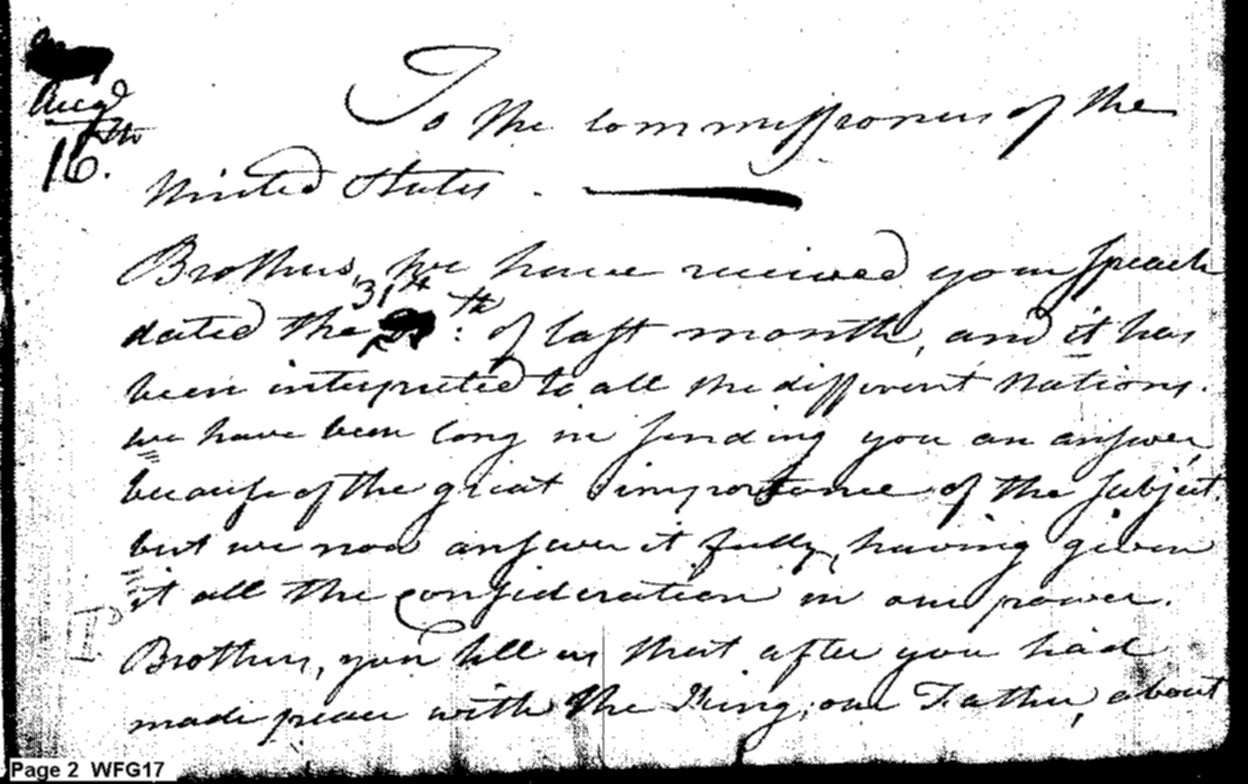 Augd
16.
To the Commissioners of the
United States.
Brothers, We have received your Speach
dated the 31st th of last month, and it has
been interpreted to all the different Nations.
we have been long in sending you an answer,
because of the great importance of the Subject,
but we now answer it fully, having given
it all the Consideration in our power.
Brothers, you tell us that after you had
made peace with the King, our Father, about
Page 2 WFG17